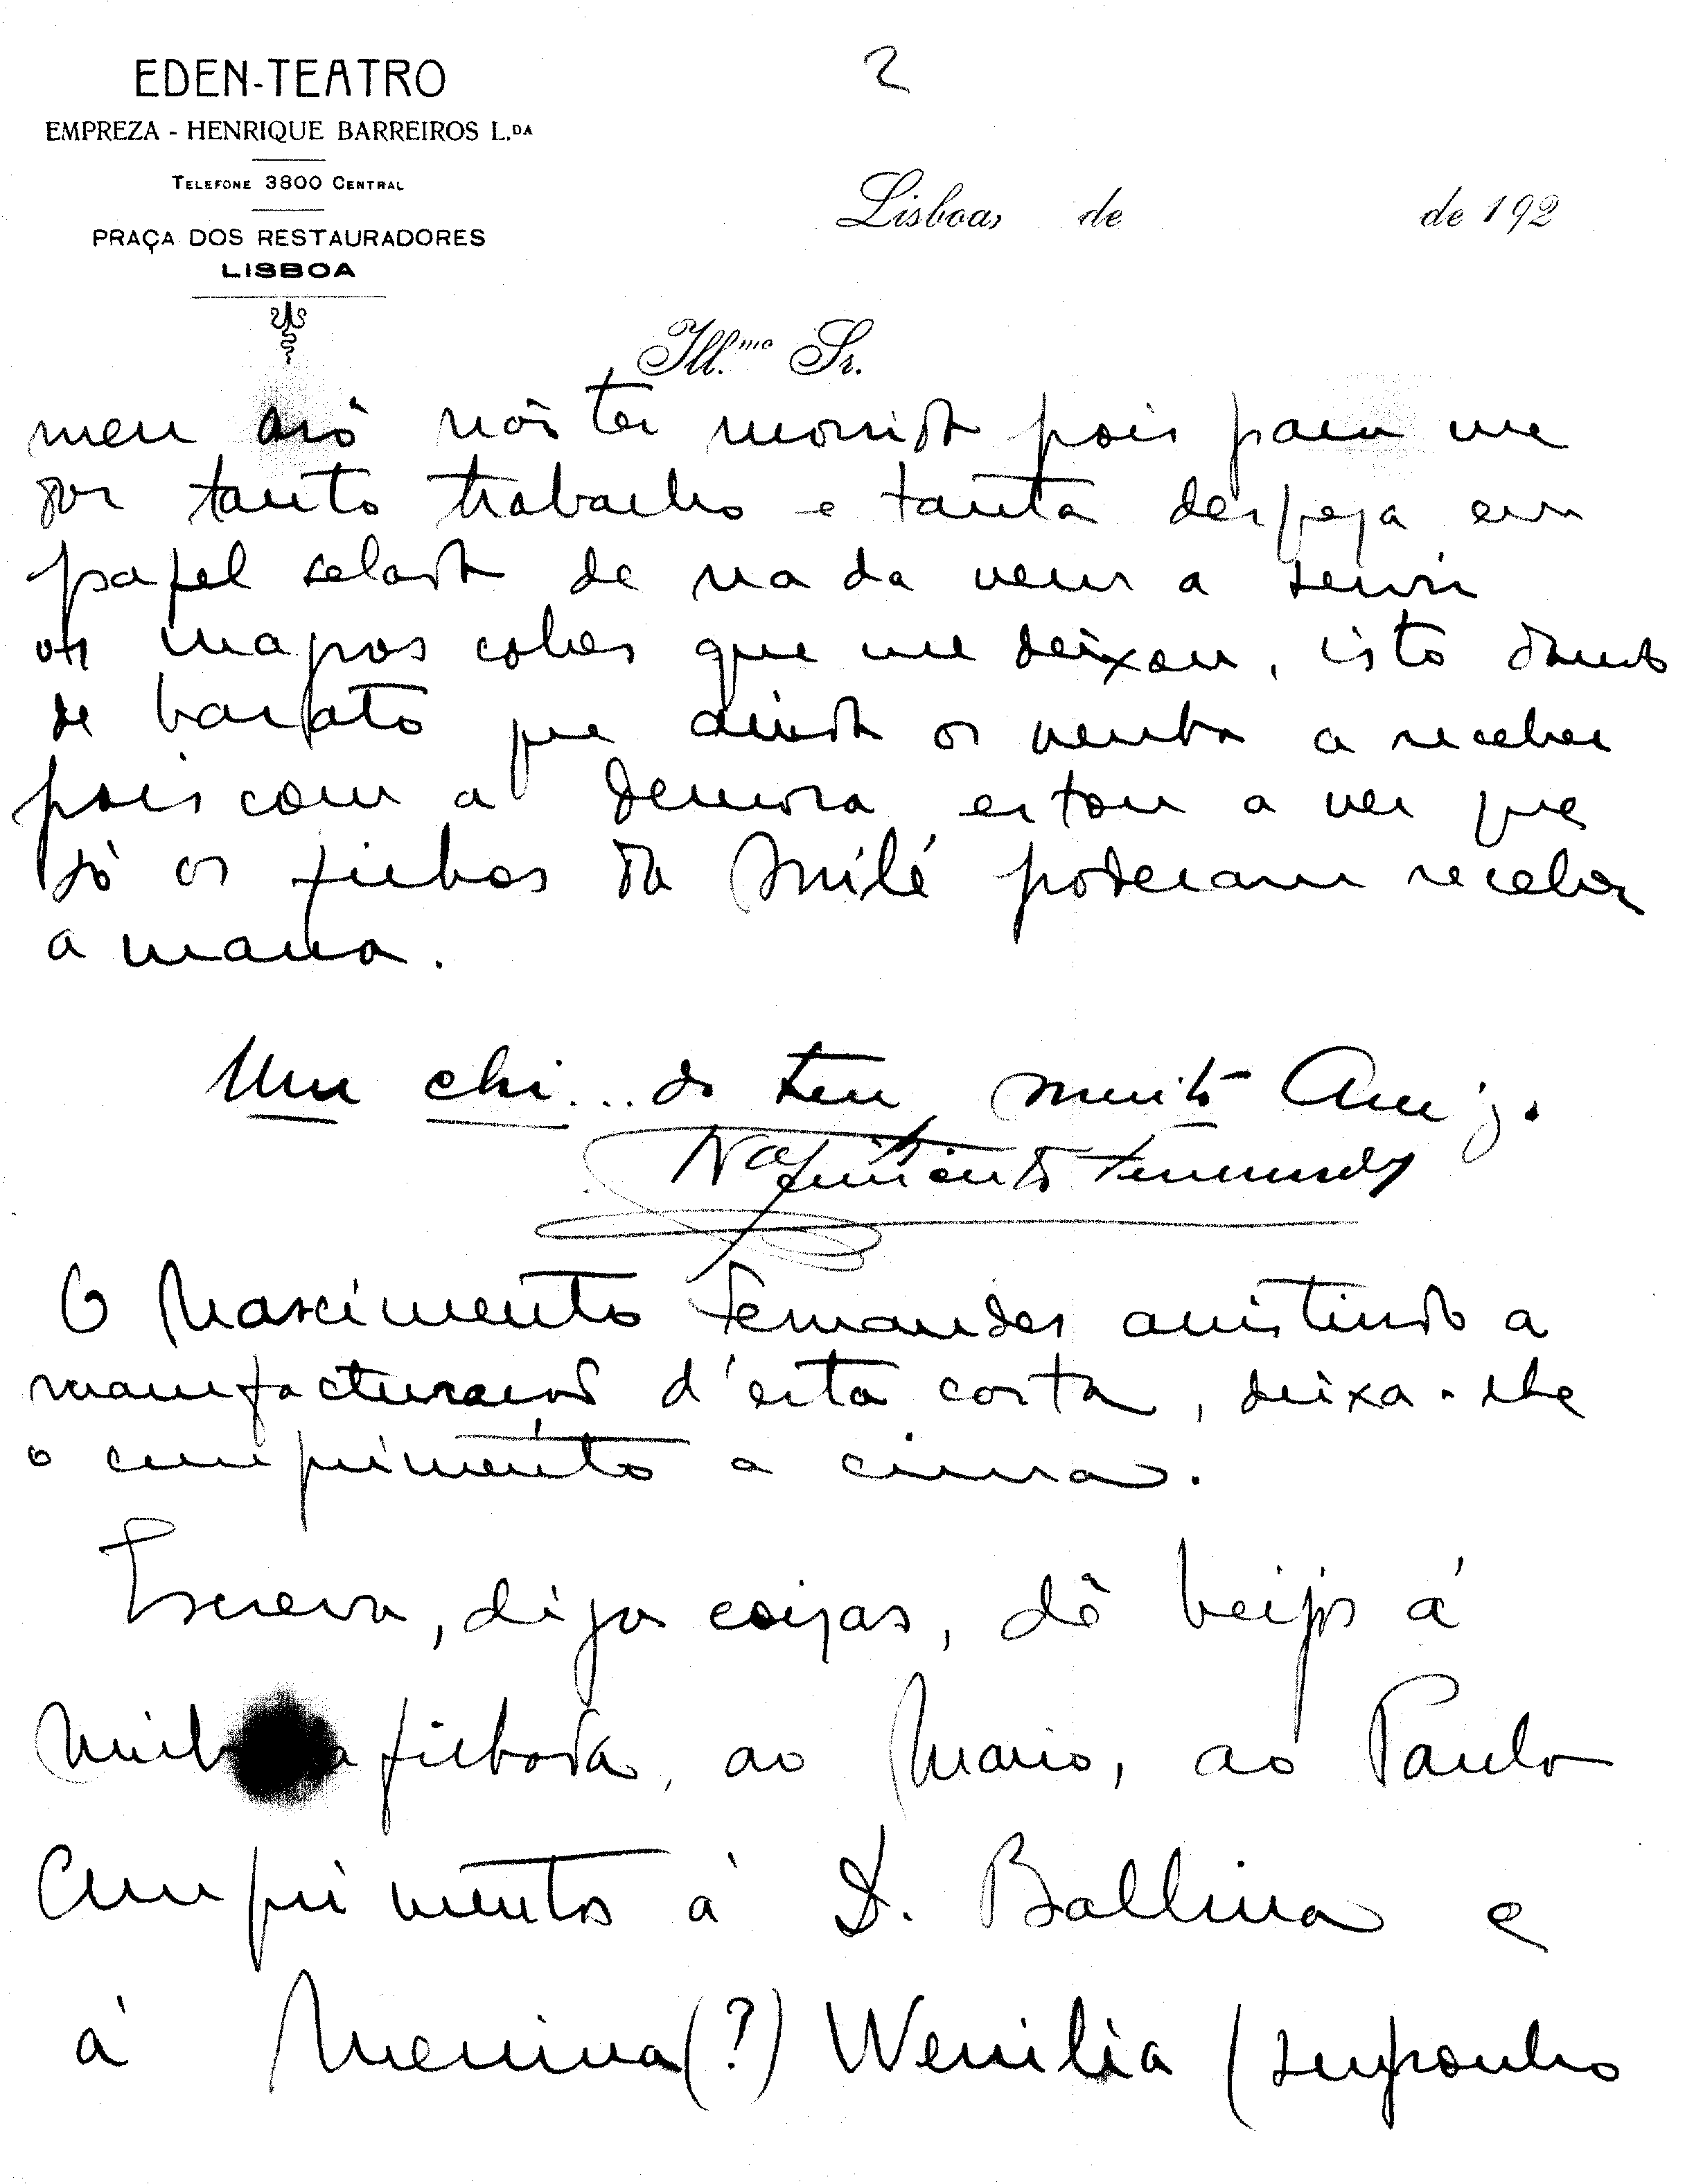 EDEN-TEATRO
EMPREZA - HENRIQUE BARREIROS L.DA
TELEFONE 3800 CENTRAL
PRAÇA DOS RESTAURADORES
LISBOA
2
Lisboa, de de 192
Ill.mo Sr.
meu avô não ter morrido pois para me
dar tanto trabalho e tanta despeza em
papel selado de nada vem a servir
os magros cobres que me deixou, isto dando
de barato que ainda os venha a receber
pois com a demora estou a ver que
só os filhos da Milé poderam receber
a massa.
Um chi... do teu muito Amigo.
Nascimento Fernandes
O Nascimento Fernandes assistindo a
manufacturação d'esta carta, deixa-lhe
o cumprimento a cima.
Escreva, diga coizas, dê beijos á
minha afilhada, ao Mario, ao Paulo
Cumprimentos á D. Ballina e
á Menina (?) Wenilia (suponho